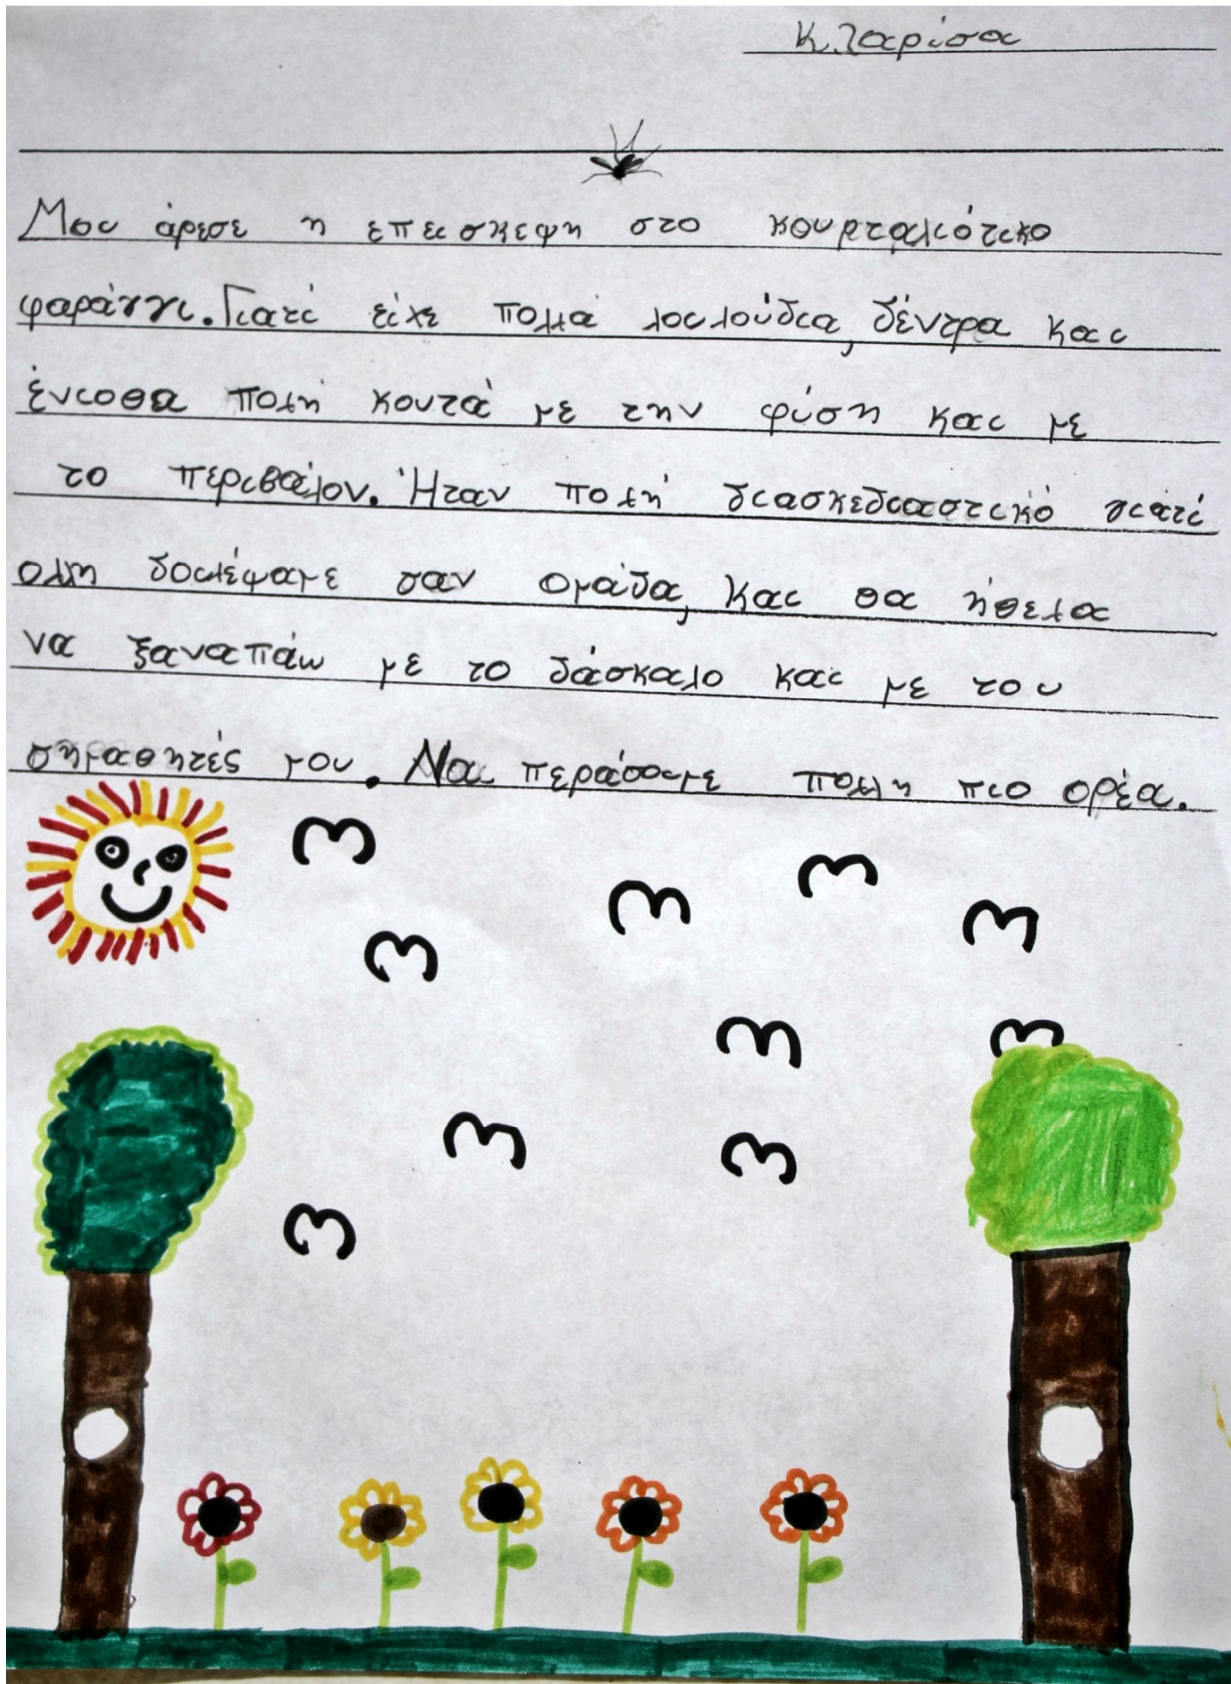 Κλαρίσα
Μου άρεσε η επεισκεψη στο κουρταλιότικο
φαράγγι. Γιατί είχε πολλά λουλούδια, δέντρα και
ένιοθα πολή κοντά με την φύση και με
το περιβάλον. Ήταν πολή διασκεδιαστικό γιατί
ολη δουλέψαμε σαν ομάδα, και θα ήθελα
να ξαναπάω με το δάσκαλο και με του
σημαθητές μου. Να περάσουμε πολλη πιο ορέα.